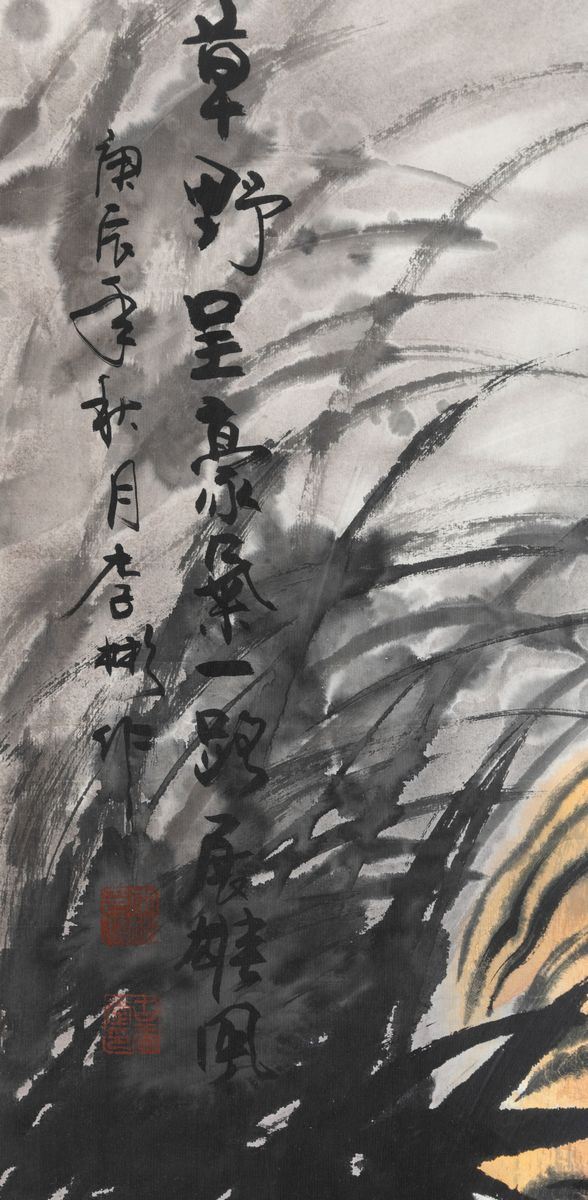 草野呈豪氣一路展雄風
庚辰年秋月李彬作